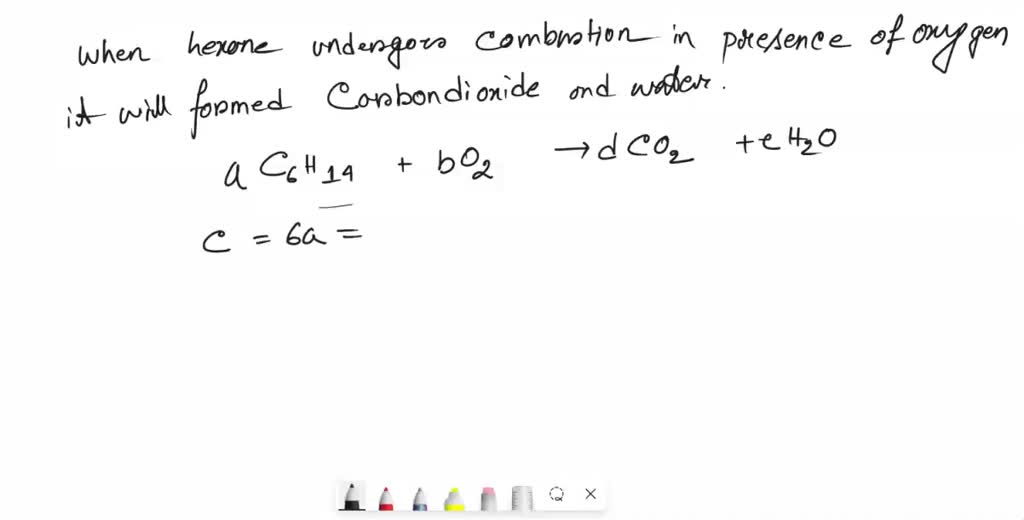 when hexane undergoes combustion in presence of oxygen
it will formed Carbondioxide and water.
a C₆H₁₄ + bO₂ → d CO₂ + e H₂O
C = 6a =